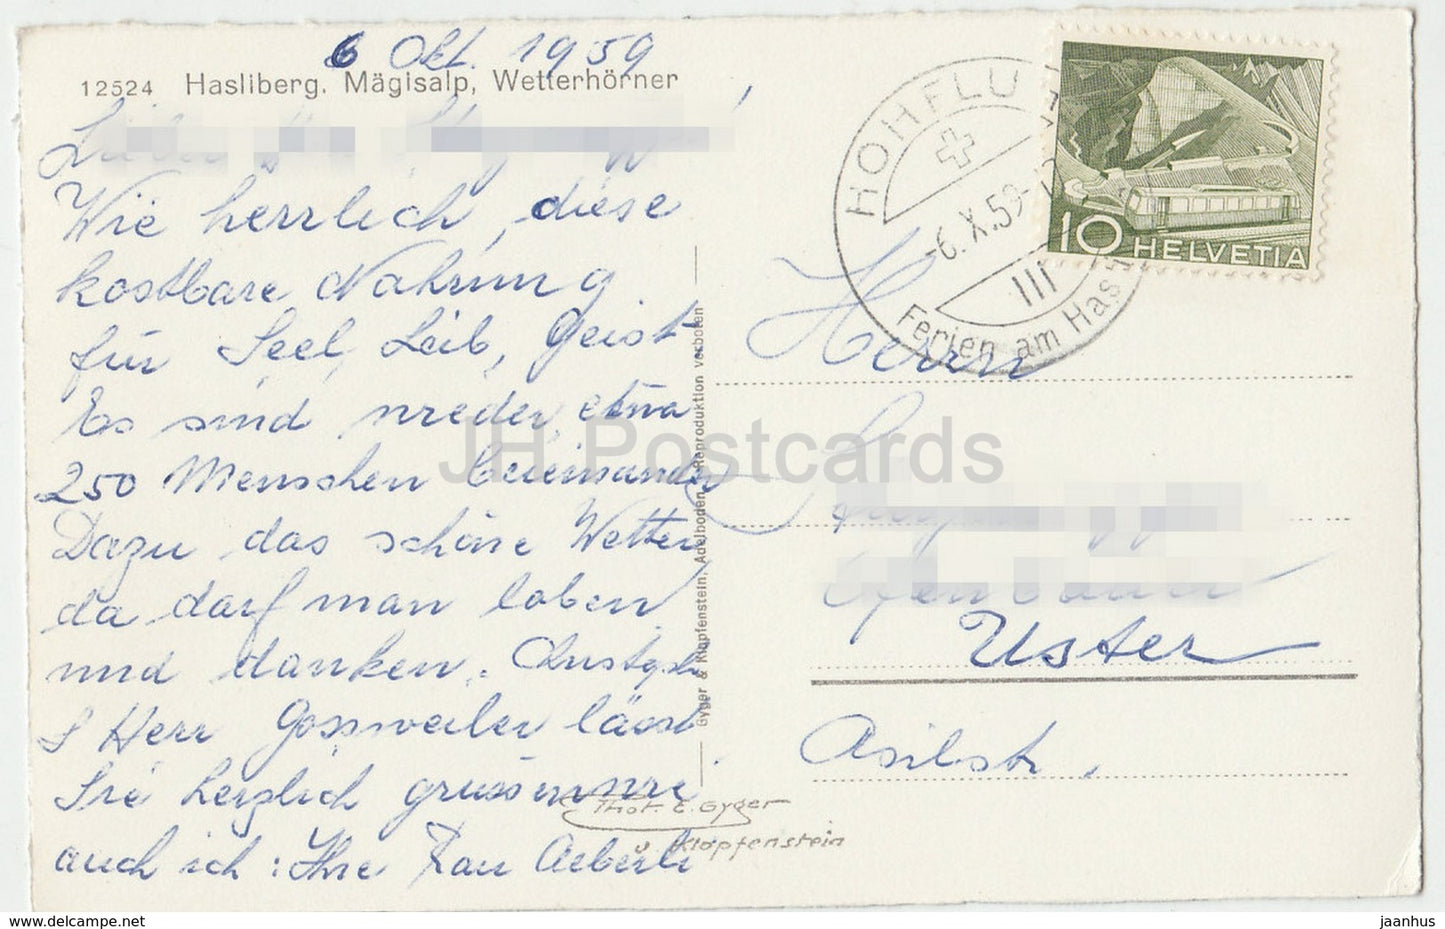 6 Okt. 1959
12524 Hasliberg. Mägisalp, Wetterhörner
Wie herrlich, diese
kostbare Nahrung
für Seel, Leib, Geist
Es sind wieder etwa
250 Menschen beieinander
Dazu das schöne Wetter
da darf man loben
und danken.
Herr Gossweiler lässt
Sie herzlich grüssen wie
auch ich: Ihre Frau Aeberli
Gyger & Klopfenstein, Adelboden, Reproduktion verboten
Phot. E. Gyger
u Klopfenstein
HOHFLU
-6.X.59-
III
Ferien am Has
10 HELVETIA
Herrn
Uster
Asilstr.
JH Postcards
www.delcampe.net
jaanhus